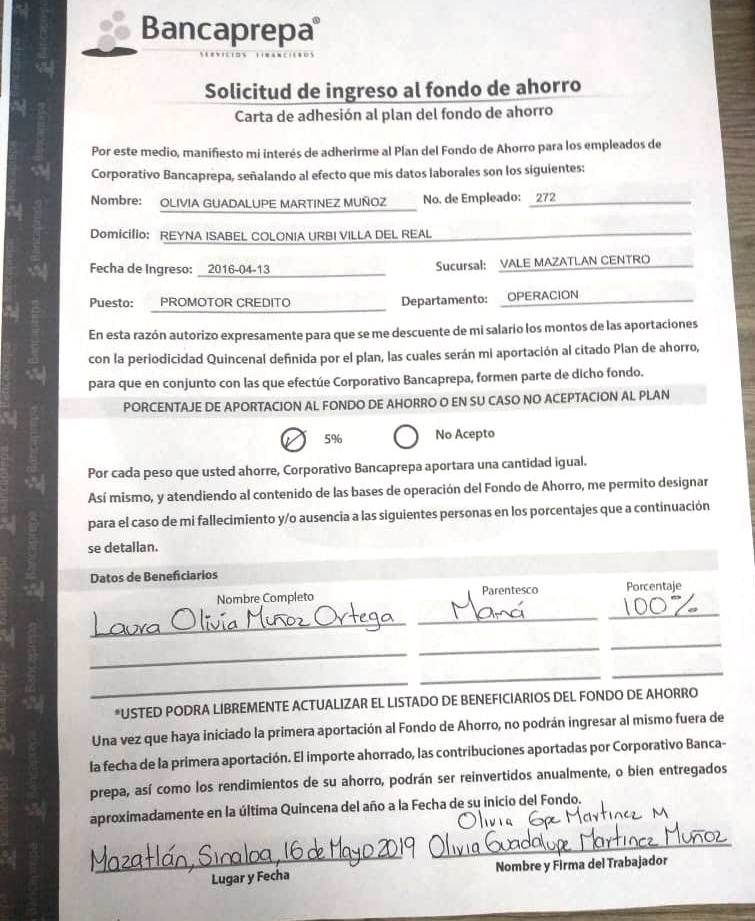 Bancaprepa®
SERVICIOS FINANCIEROS
Solicitud de ingreso al fondo de ahorro
Carta de adhesión al plan del fondo de ahorro
Por este medio, manifiesto mi interés de adherirme al Plan del Fondo de Ahorro para los empleados de
Corporativo Bancaprepa, señalando al efecto que mis datos laborales son los siguientes:
Nombre: OLIVIA GUADALUPE MARTINEZ MUÑOZ No. de Empleado: 272
Domicilio: REYNA ISABEL COLONIA URBI VILLA DEL REAL
Fecha de Ingreso: 2016-04-13 Sucursal: VALE MAZATLAN CENTRO
Puesto: PROMOTOR CREDITO Departamento: OPERACION
En esta razón autorizo expresamente para que se me descuente de mi salario los montos de las aportaciones
con la periodicidad Quincenal definida por el plan, las cuales serán mi aportación al citado Plan de ahorro,
para que en conjunto con las que efectúe Corporativo Bancaprepa, formen parte de dicho fondo.
PORCENTAJE DE APORTACION AL FONDO DE AHORRO O EN SU CASO NO ACEPTACION AL PLAN
5% No Acepto
Por cada peso que usted ahorre, Corporativo Bancaprepa aportara una cantidad igual.
Así mismo, y atendiendo al contenido de las bases de operación del Fondo de Ahorro, me permito designar
para el caso de mi fallecimiento y/o ausencia a las siguientes personas en los porcentajes que a continuación
se detallan.
Datos de Beneficiarios
Nombre Completo Parentesco Porcentaje
Laura Olivia Muñoz Ortega Mamá 100%
*USTED PODRA LIBREMENTE ACTUALIZAR EL LISTADO DE BENEFICIARIOS DEL FONDO DE AHORRO
Una vez que haya iniciado la primera aportación al Fondo de Ahorro, no podrán ingresar al mismo fuera de
la fecha de la primera aportación. El importe ahorrado, las contribuciones aportadas por Corporativo Banca-
prepa, así como los rendimientos de su ahorro, podrán ser reinvertidos anualmente, o bien entregados
aproximadamente en la última Quincena del año a la Fecha de su inicio del Fondo.
Olivia Gpe Martinez M
Mazatlán, Sinaloa, 16 de Mayo 2019 Olivia Guadalupe Martinez Muñoz
Lugar y Fecha Nombre y Firma del Trabajador